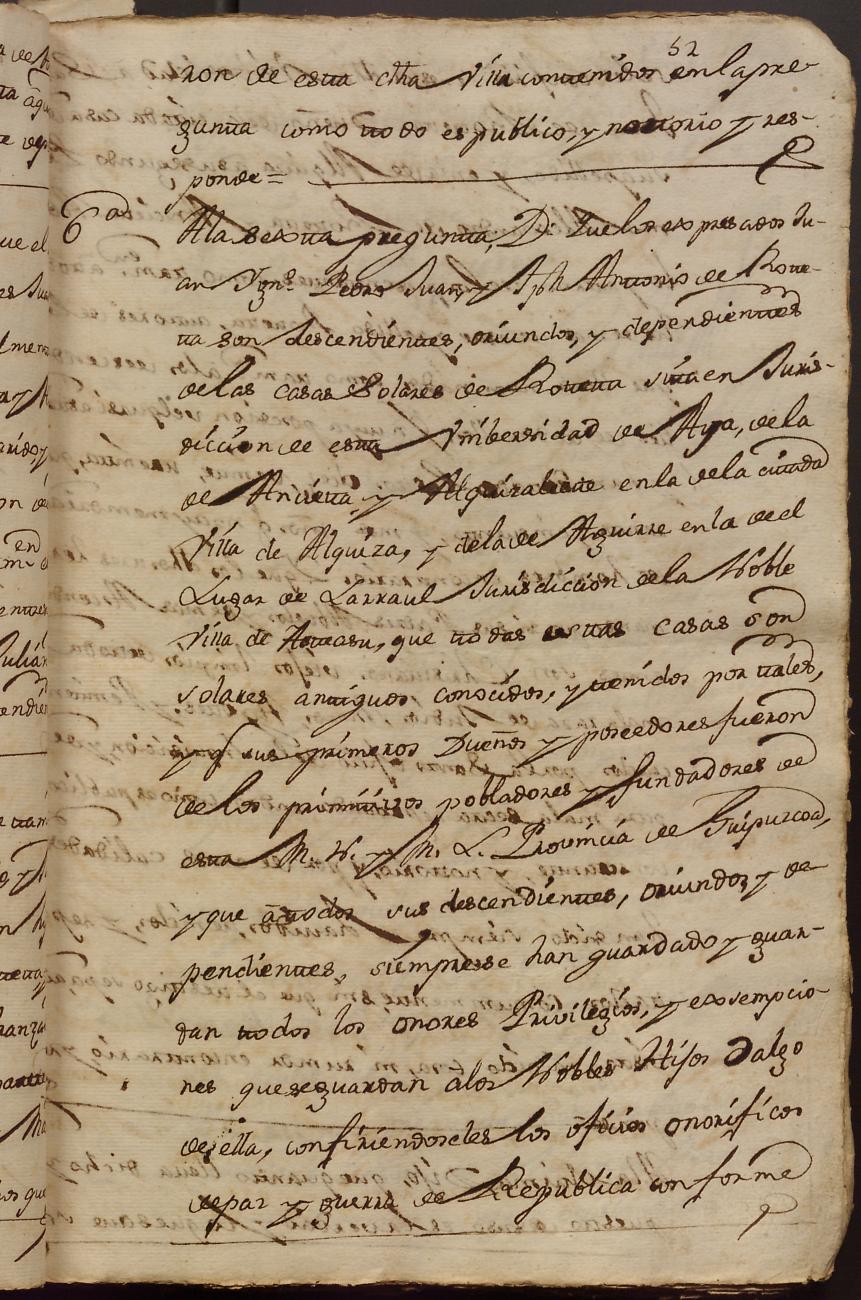 52
ron de esta dha Villa contenidos en la pre-
gunta como todo es publico, y notorio y res-
ponde=
6ª A la sexta pregunta, D. Que los expresados Ju-
an Ygnº Pedro Juan, y Jph Antonio de Rote-
ta son descendientes, oriundos, y dependientes
de las casas Solares de Roteta sita en Juris-
diccion de esta Vniberzidad de Aya, de la
de Anieta y Alquizalete en la de la citada
Villa de Alquiza, y de la de Aguirre en la de el
Lugar de Larraul Jurisdicion de la Noble
Villa de Asteasu, que todas estas casas son
solares antiguos conocidos, y tenidos por tales,
y q sus primeros Dueños y poseedores fueron
de los primitivos pobladores y fundadores de
esta M. N. y M. L. Provincia de Guipuzcoa,
y que á todos sus descendientes, oriundos, y de-
pendientes, siempre se han guardado y guar-
dan todos los onores Privilegios, y exsempcio-
nes que se guardan a los Nobles Hijos Dalgo
de ella, confiriendoseles los oficios onorificos
de paz y guerra de Republica conforme